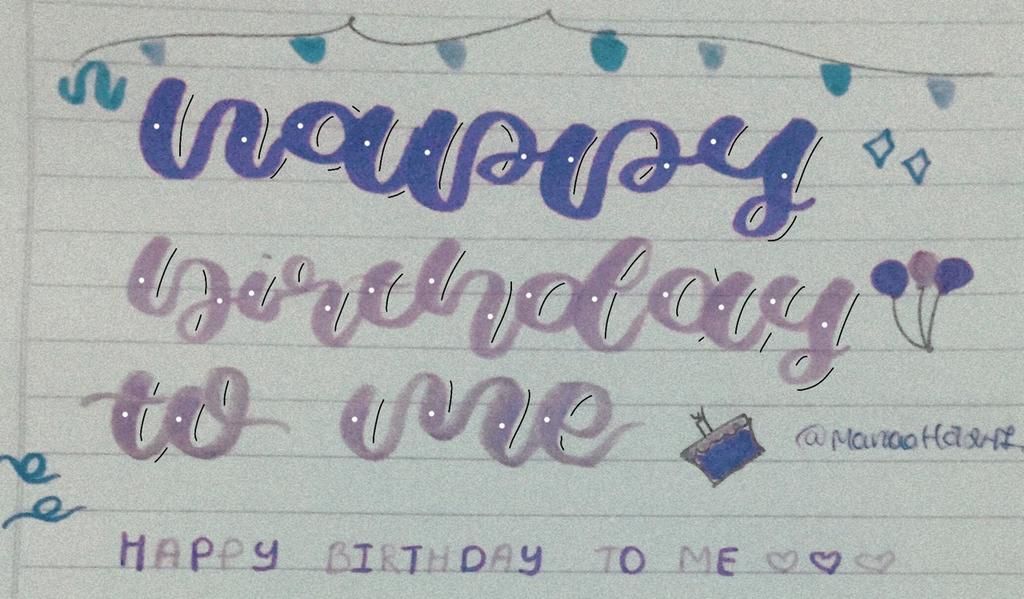 happy
birthday
to me
HAPPY BIRTHDAY TO ME ♡♡♡